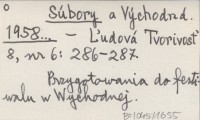 Súbory a Východná.
1958... – Ľudová Tvorivosť
8, nr 6: 286-287.
Przygotowania do festi-
walu w Wychodnej.